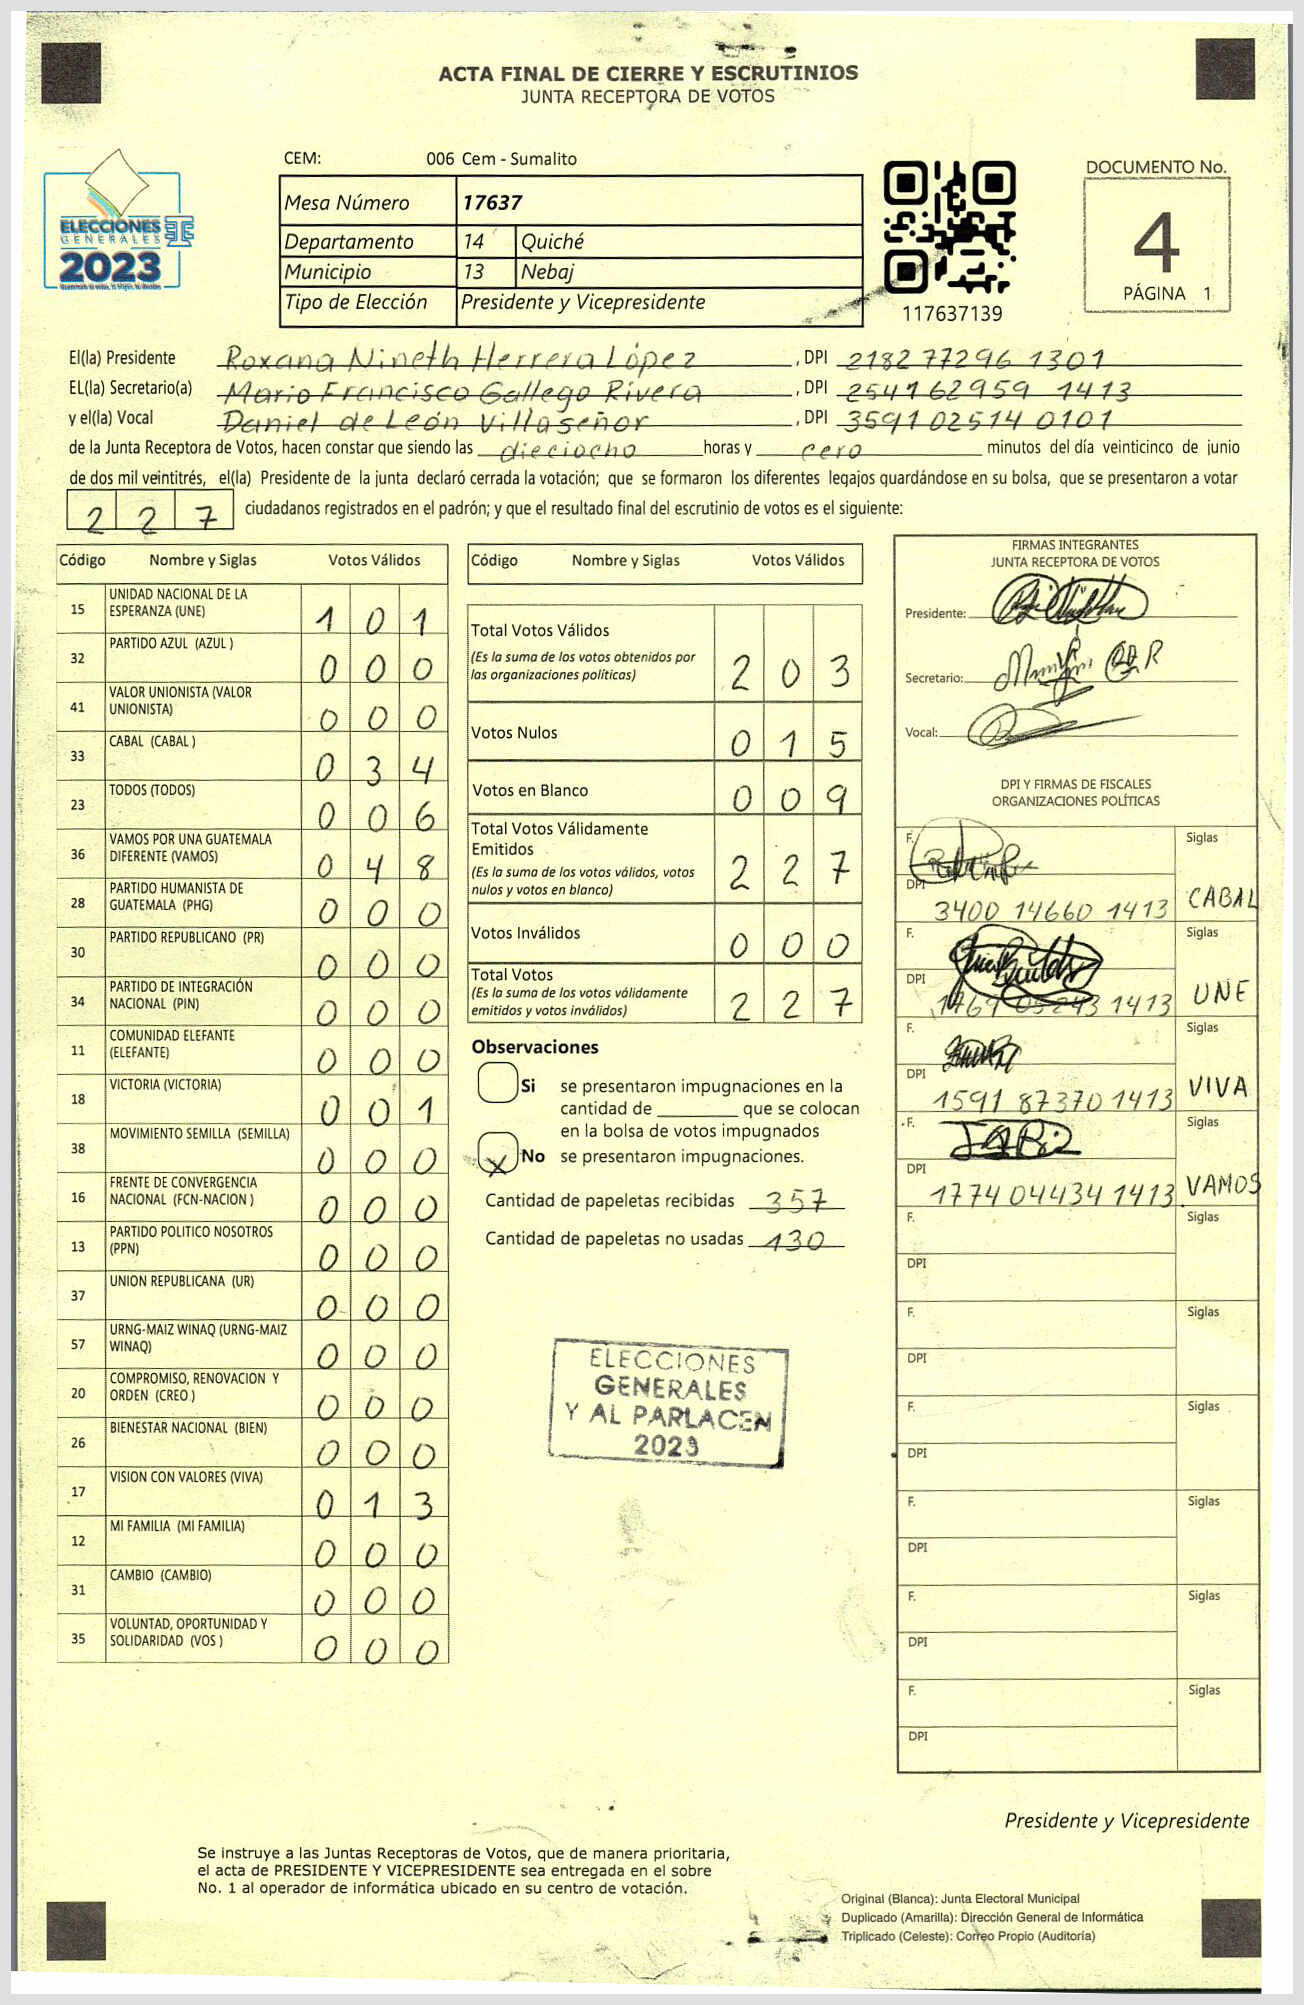 ACTA FINAL DE CIERRE Y ESCRUTINIOS
JUNTA RECEPTORA DE VOTOS
CEM: 006 Cem - Sumalito
Mesa Número 17637
Departamento 14 Quiché
Municipio 13 Nebaj
Tipo de Elección Presidente y Vicepresidente
ELECCIONES
GENERALES
2023
117637139
DOCUMENTO No.
4
PÁGINA 1
El(la) Presidente Roxana Nineth Herrera López , DPI 2182 77296 1301
EL(la) Secretario(a) Mario Francisco Gallego Rivera , DPI 2541 62959 1413
y el(la) Vocal Daniel de León Villaseñor , DPI 3591 02514 0101
de la Junta Receptora de Votos, hacen constar que siendo las dieciocho horas y cero minutos del día veinticinco de junio
de dos mil veintitrés, el(la) Presidente de la junta declaró cerrada la votación; que se formaron los diferentes legajos quardándose en su bolsa, que se presentaron a votar
227 ciudadanos registrados en el padrón; y que el resultado final del escrutinio de votos es el siguiente:
Código Nombre y Siglas Votos Válidos
15 UNIDAD NACIONAL DE LA
ESPERANZA (UNE) 101
32 PARTIDO AZUL (AZUL ) 000
41 VALOR UNIONISTA (VALOR
UNIONISTA) 000
33 CABAL (CABAL ) 034
23 TODOS (TODOS) 006
36 VAMOS POR UNA GUATEMALA
DIFERENTE (VAMOS) 048
28 PARTIDO HUMANISTA DE
GUATEMALA (PHG) 000
30 PARTIDO REPUBLICANO (PR) 000
34 PARTIDO DE INTEGRACIÓN
NACIONAL (PIN) 000
11 COMUNIDAD ELEFANTE
(ELEFANTE) 000
18 VICTORIA (VICTORIA) 001
38 MOVIMIENTO SEMILLA (SEMILLA) 000
16 FRENTE DE CONVERGENCIA
NACIONAL (FCN-NACION ) 000
13 PARTIDO POLITICO NOSOTROS
(PPN) 000
37 UNION REPUBLICANA (UR) 000
57 URNG-MAIZ WINAQ (URNG-MAIZ
WINAQ) 000
20 COMPROMISO, RENOVACION Y
ORDEN (CREO ) 000
26 BIENESTAR NACIONAL (BIEN) 000
17 VISION CON VALORES (VIVA) 013
12 MI FAMILIA (MI FAMILIA) 000
31 CAMBIO (CAMBIO) 000
35 VOLUNTAD, OPORTUNIDAD Y
SOLIDARIDAD (VOS ) 000
Código Nombre y Siglas Votos Válidos
Total Votos Válidos
(Es la suma de los votos obtenidos por
las organizaciones politicas) 203
Votos Nulos 015
Votos en Blanco 009
Total Votos Válidamente
Emitidos
(Es la suma de los votos válidos, votos
nulos y votos en blanco) 227
Votos Inválidos 000
Total Votos
(Es la suma de los votos válidamente
emitidos y votos inválidos) 227
Observaciones
Si se presentaron impugnaciones en la
cantidad de ________ que se colocan
en la bolsa de votos impugnados
X No se presentaron impugnaciones.
Cantidad de papeletas recibidas 357
Cantidad de papeletas no usadas 130
ELECCIONES
GENERALES
Y AL PARLACEN
2023
FIRMAS INTEGRANTES
JUNTA RECEPTORA DE VOTOS
Presidente:
Secretario:
Vocal:
DPI Y FIRMAS DE FISCALES
ORGANIZACIONES POLÍTICAS
F. Siglas
DPI 3400 14660 1413 CABAL
F. Siglas
DPI 1769 05243 1413 UNE
F. Siglas
DPI 1591 87370 1413 VIVA
F. Siglas
DPI 1774 04434 1413 VAMOS
F. Siglas
DPI
F. Siglas
DPI
F. Siglas
DPI
F. Siglas
DPI
F. Siglas
DPI
F. Siglas
DPI
Presidente y Vicepresidente
Se instruye a las Juntas Receptoras de Votos, que de manera prioritaria,
el acta de PRESIDENTE Y VICEPRESIDENTE sea entregada en el sobre
No. 1 al operador de informática ubicado en su centro de votación.
Original (Blanca): Junta Electoral Municipal
Duplicado (Amarilla): Dirección General de Informática
Triplicado (Celeste): Correo Propio (Auditoría)